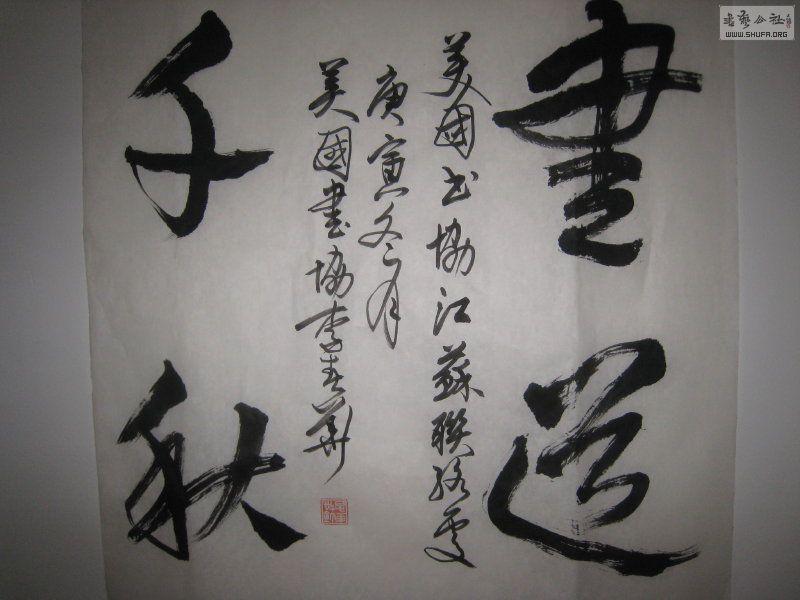 書道
美國书協江蘇聯络處
庚寅冬月
美國書協李春華
千秋
書藝公社
WWW.SHUFA.ORG